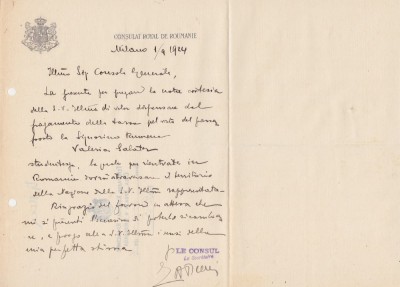 CONSULAT ROYAL DE ROUMANIE
Milano 1/9 1924
Illmo Sig Console Generale,
La presente per pregare la nota cortesia
della S.V. Illma di voler dispensare dal
pagamento della tassa pel visto del passa
porto la Signorina Rumena
Valeria
studentessa, la quale per rientrare in
Romania dovrà attraversare il territorio
della Nazione dalla S.V. Illma rappresentata.
Ringrazio del favore in attesa che
mi si presenti l'occasione di poterlo
e, e porgo alla S.V. Illma i sensi della
mia perfetta stima
LE CONSUL